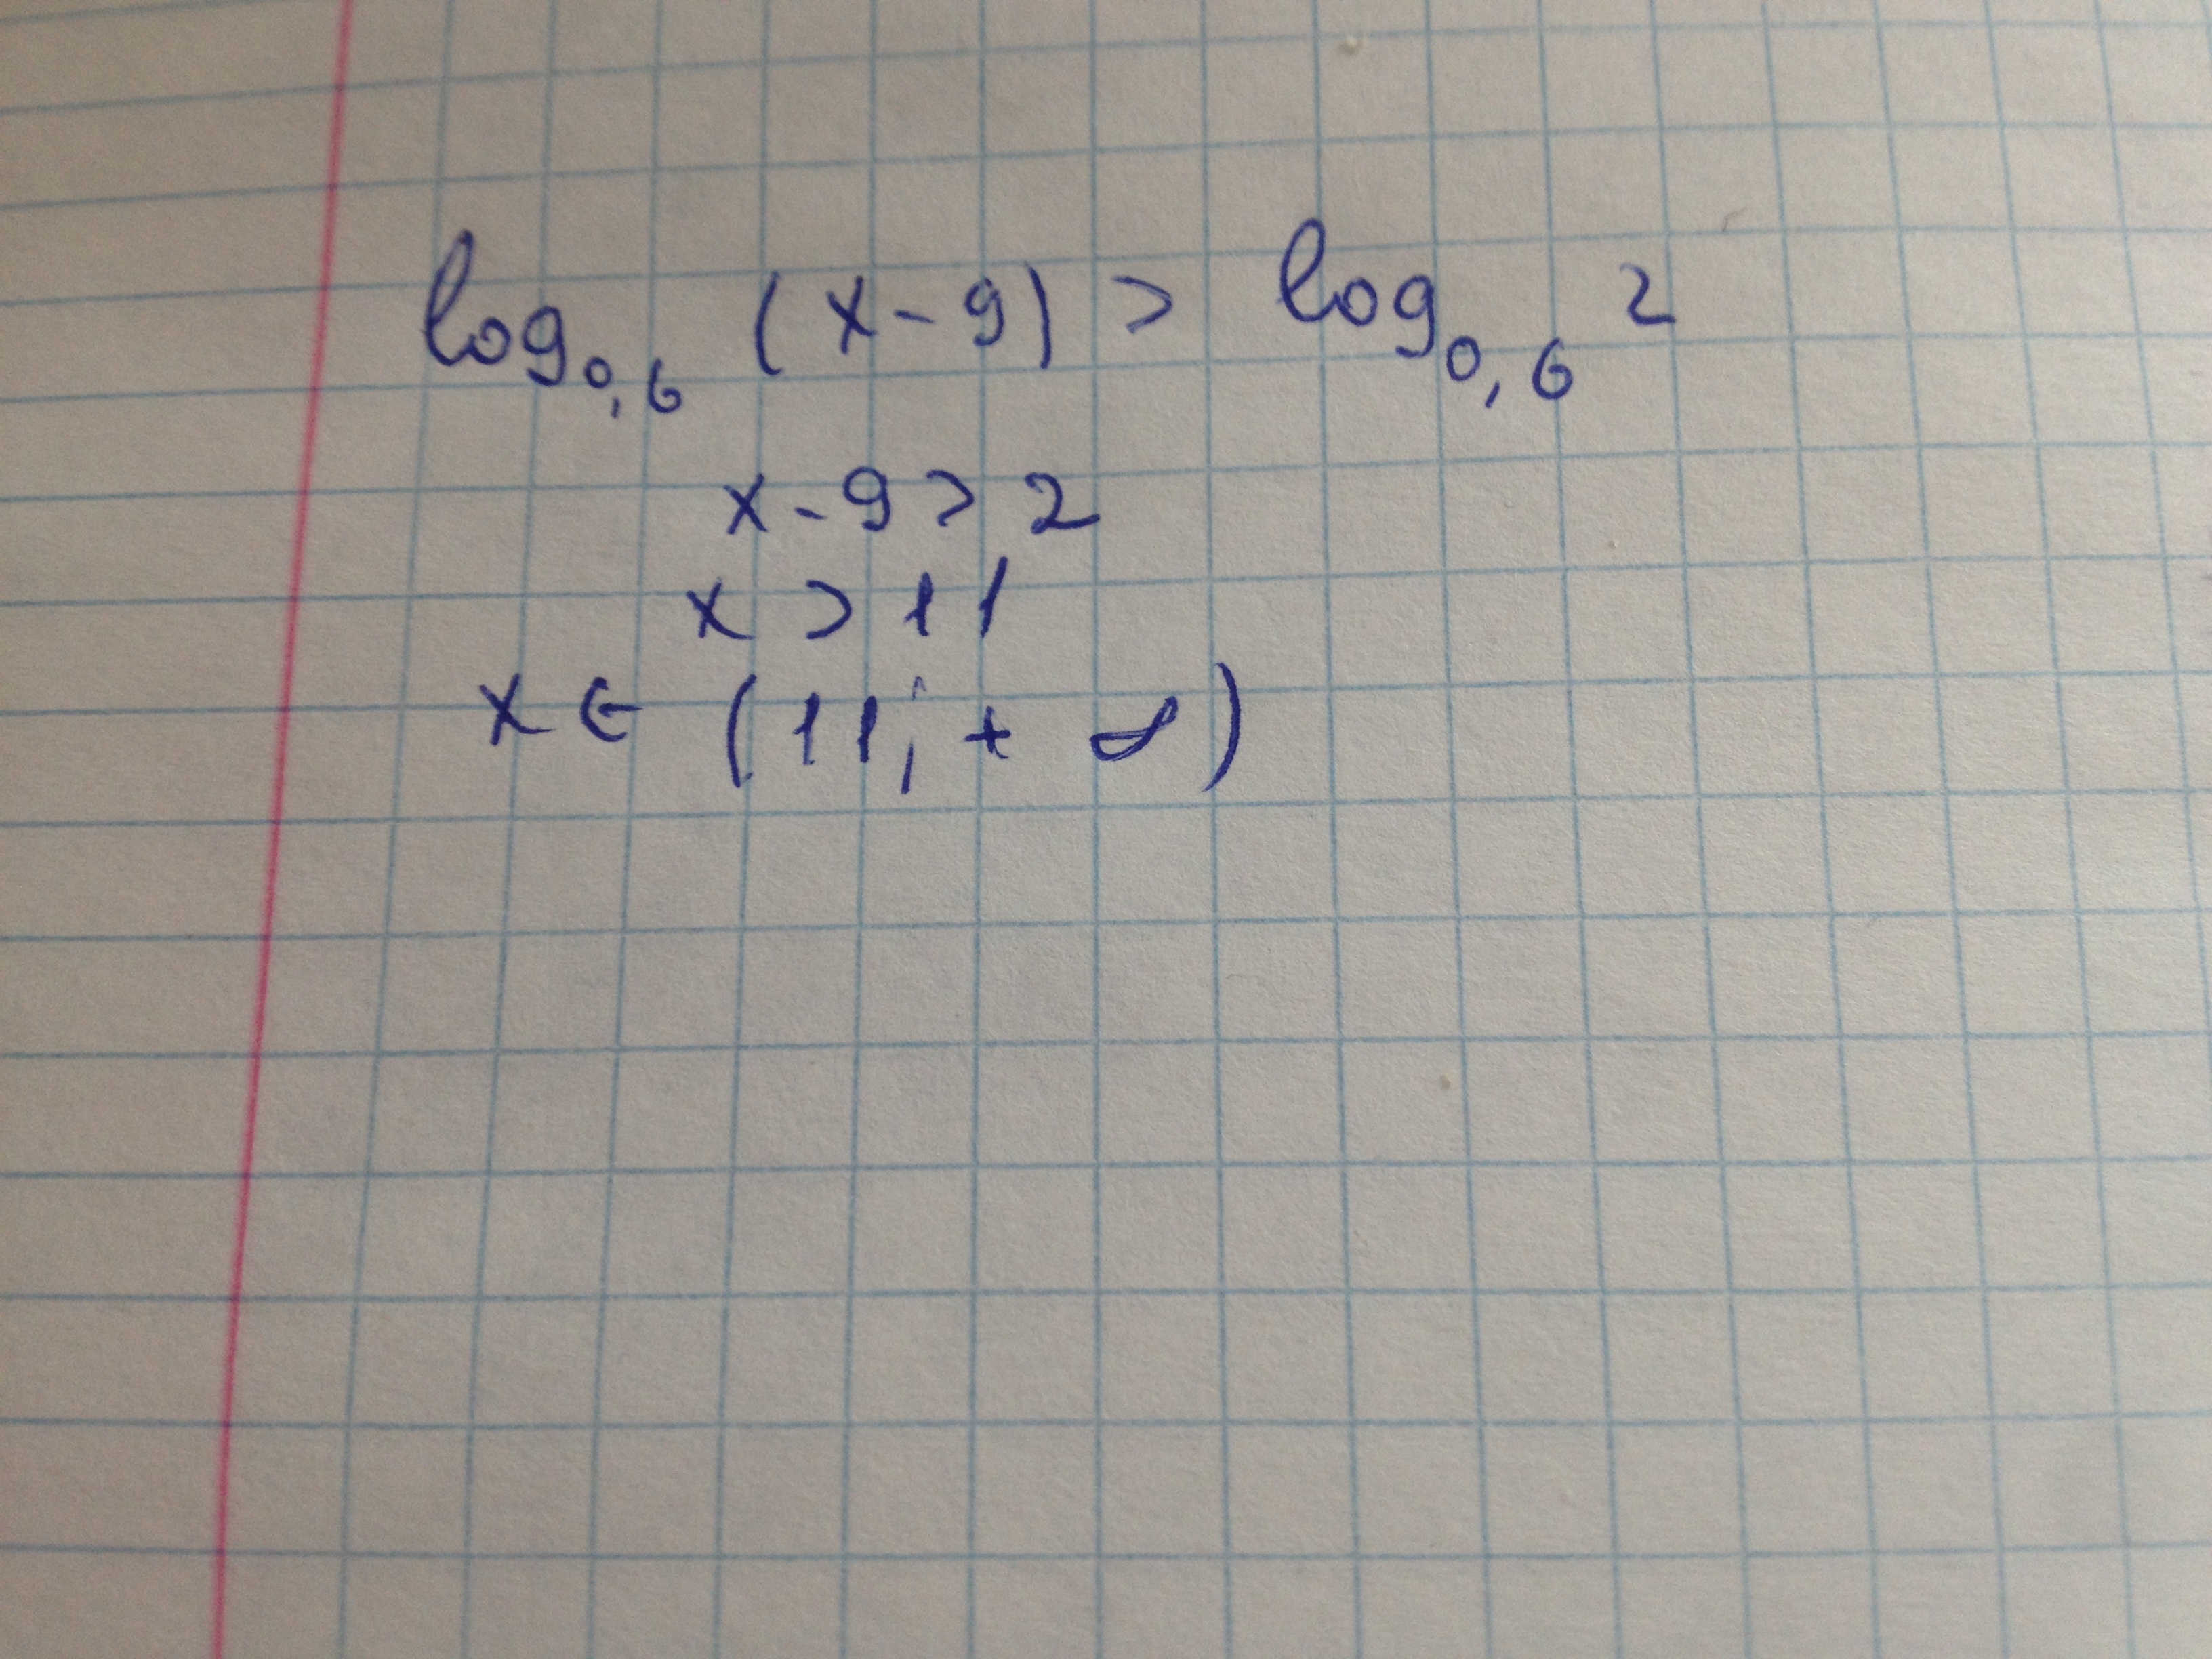 log₀,₆ (x - 9) > log₀,₆ 2
x - 9 > 2
x > 11
x ∈ (11; + ∞)